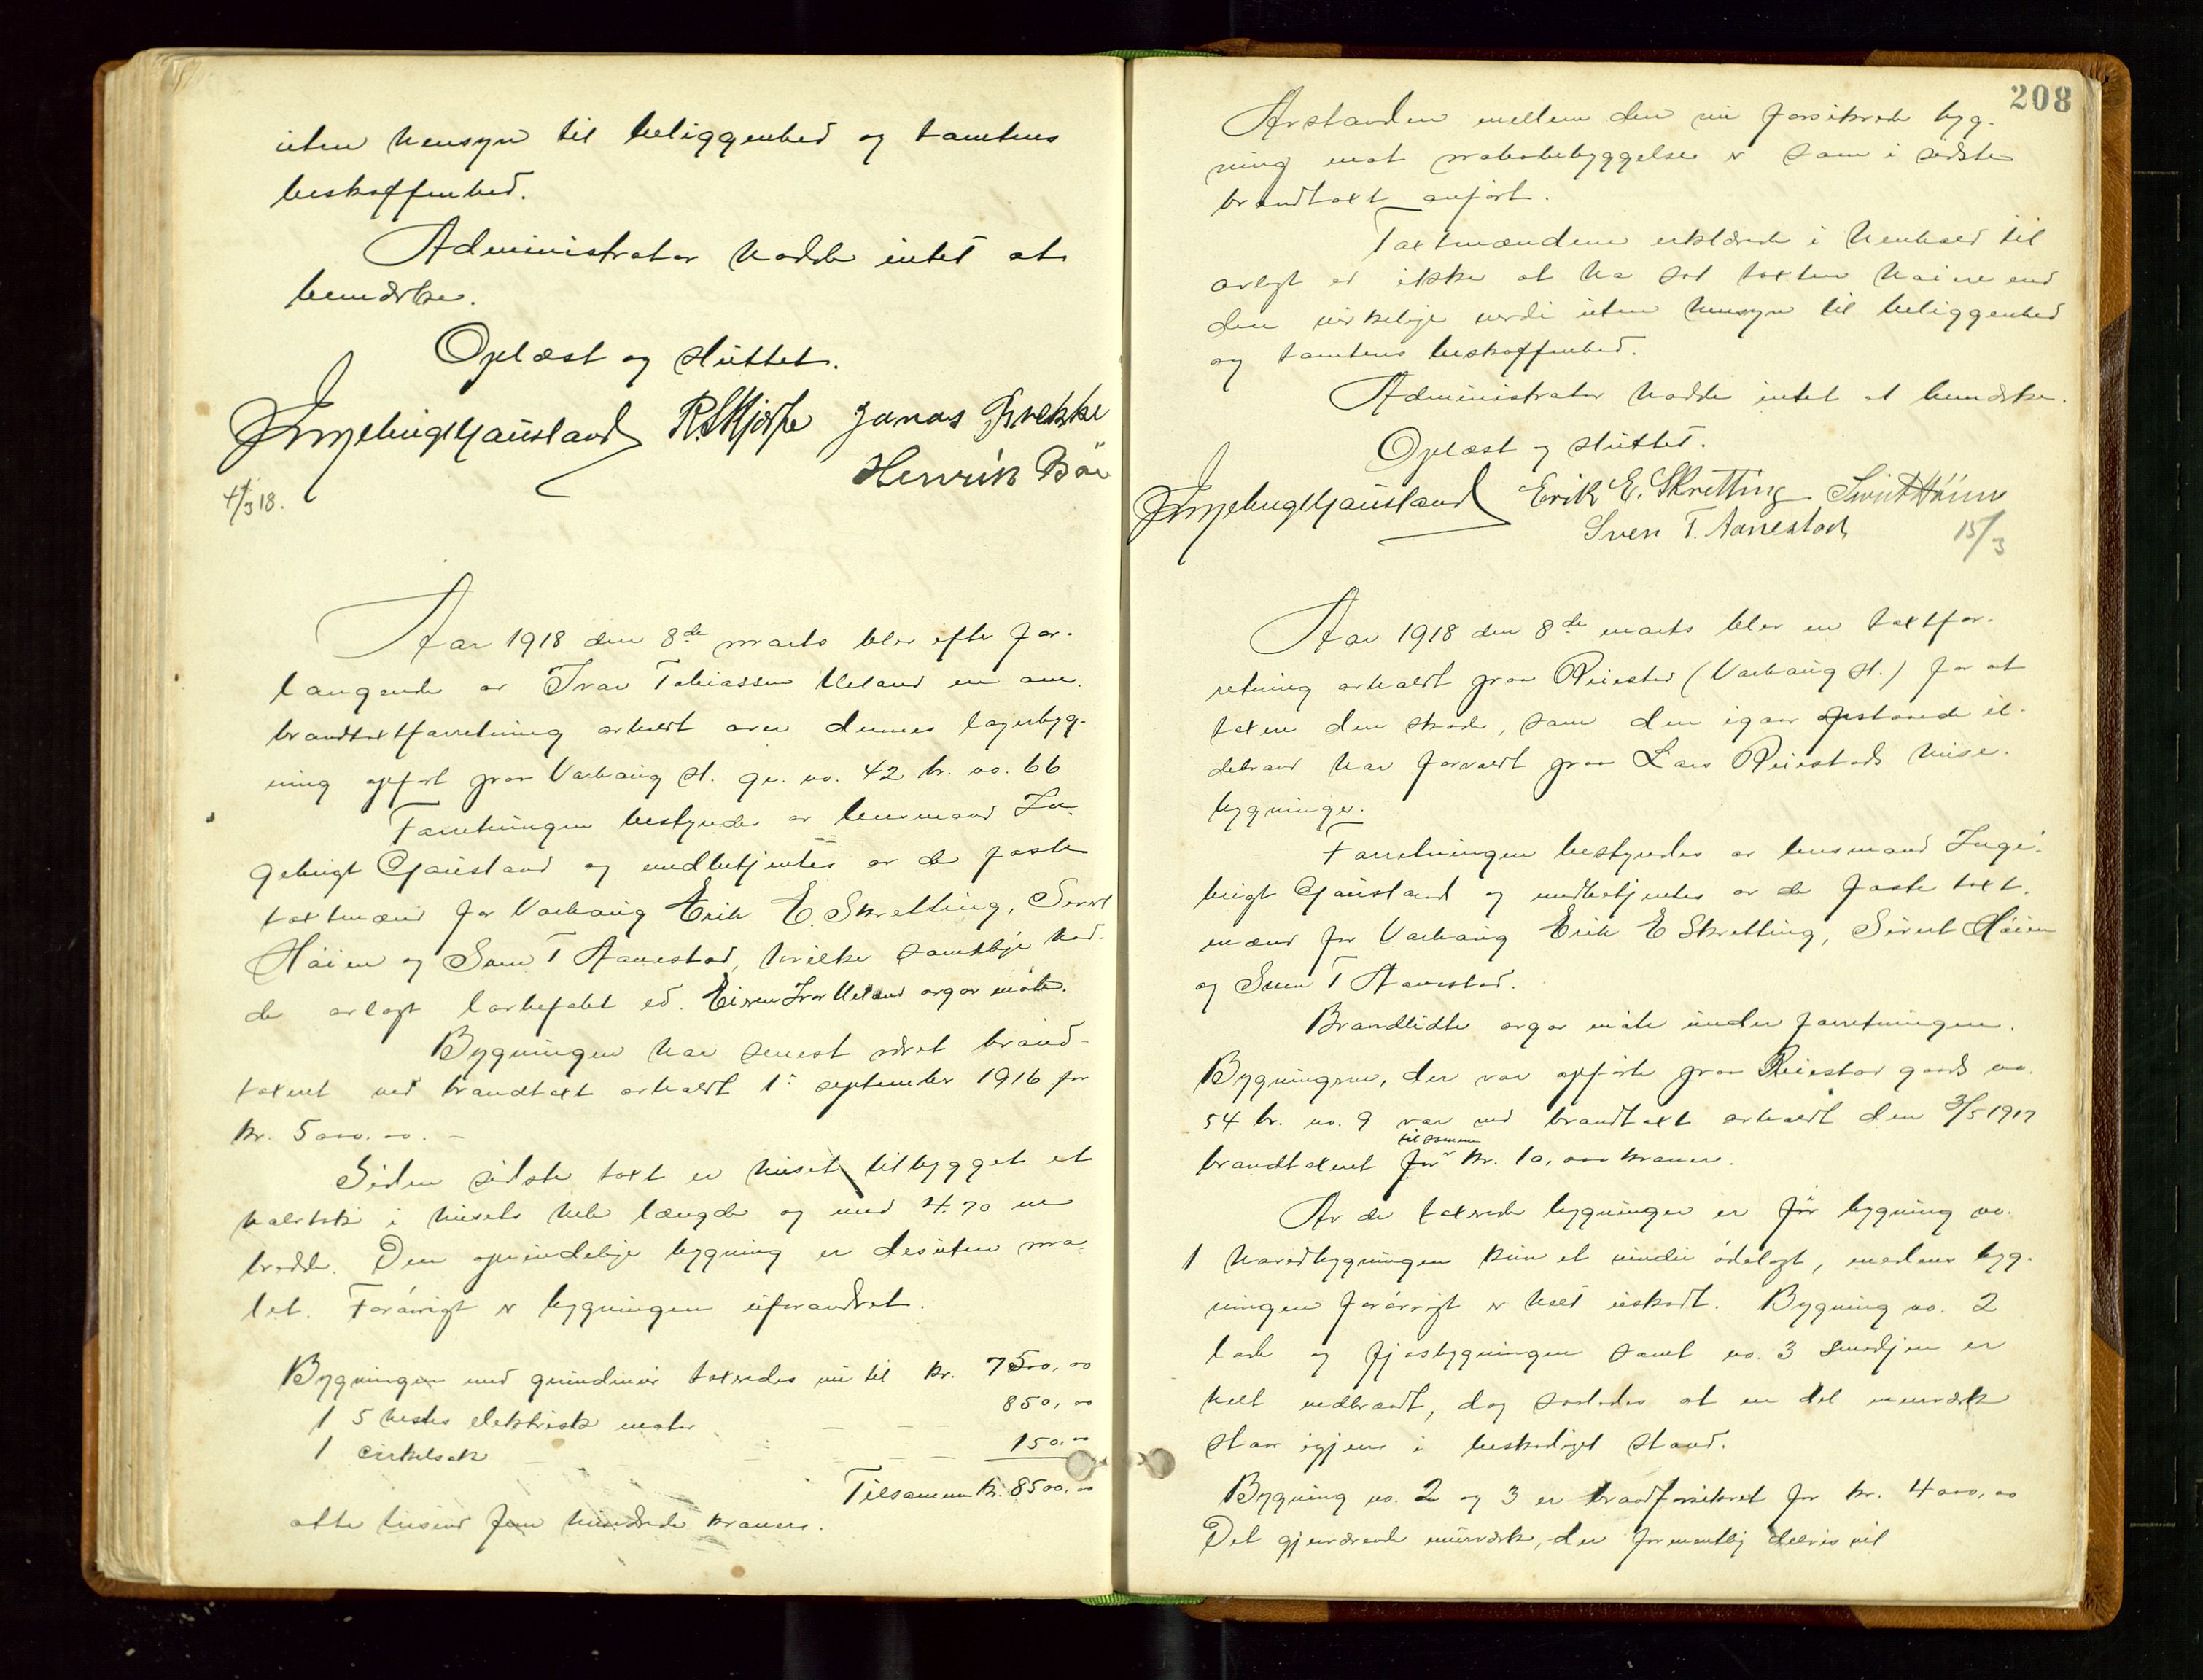 uten hensyn til beliggenhed og tomtens
beskaffenhed.
Administrator hadde intet at
bemærke.
Oplæst og sluttet.
Ingebrigt Gausland R. Skjorpe Jonas Brekke
Henrik Böe
4/3 18.
Aar 1918 den 8de marts blev efter for-
langende av Ivar Tobiassen Ueland en om-
brandtaxtforretning avholdt over dennes lagerbyg-
ning opfört paa Varhaug st. gr. no. 42 br. no. 66
Forretningen bestyredes av lensmand In-
gebrigt Gausland og medbetjentes av de faste
taxtmænd for Varhaug Erik E. Skretting, Sivert
Höien og Sven T Aanestad, hvilke samtlige had-
de avlagt lovbefalet ed. Eieren Ivar Ueland avgav möte.
Bygningen har senest været brand-
taxeret ved brandtaxt avholdt 1ste september 1916 for
kr. 5000.00. –
Siden sidste taxt er huset tilbygget et
halvtak i husets hele længde og med 4.70 m
bredde. Den oprindelige bygning er desuten ma-
let. Forövrigt er bygningen uforandret.
Bygningen med grundmur taxeredes nu til kr. 7500,00
1 5 hestes elektrisk motor – – 850,00
1 cirkelsak – – – 150.00
Tilsammen kr. 8500,00
otte tusind fem hundrede kroner.
208
Avstanden mellem den nu forsikrede byg-
ning mot nabobebyggelse er som i sidste
brandtaxt anfört.
Taxtmændene erklærede i henhold til
avlagt ed ikke at ha sat taxten höiere end
den virkelige verdi uten hensyn til beliggenhed
og tomtens beskaffenhed.
Administrator hadde intet at bemærke.
Oplæst og sluttet.
Ingebrigt Gausland Erik E. Skretting Sivert Höien
Sven T. Aanestad 15/3
Aar 1918 den 8de marts blev en taxtfor-
retning avholdt paa Reiestad (Varhaug st.) for at
taxere den skade, som den igaar opstaaede il-
debrand har forvoldt paa Lars Reiestads huse-
bygninger.
Forretningen bestyredes av lensmand Inge-
brigt Gausland og medbetjentes av de faste taxt-
mænd for Varhaug Erik E Skretting, Sivert Höien
og Sven T Aanestad.
Brandlidte avgav möte under forretningen.
Bygningene, der var opförte paa Reiestad gaards no.
54 br. no. 9 var ved brandtaxt avholdt den 3/5 1917
tilsammen
brandtaxeret for kr. 10,000 kroner.
Av de taxerede bygninger er for bygning no.
1 hovedbygningen kun et vindu ödelagt, medens byg-
ningen forövrigt er helt uskadt. Bygning no. 2
lade og fjösbygningen samt no. 3 smedjen er
helt nedbrændt, dog saaledes at en del murværk
staar igjen i beskadiget stand.
Bygning no. 2 og 3 er brandforsikret for kr. 4000,00
Det gjenværende murværk, der formentlig delvis vil